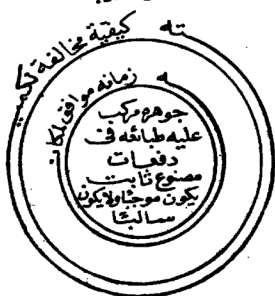 ته كيفية مخالفة لكميـ
ـه زمانه موافق لمكانـ
جوهره مركب
عليه طبائعه فى
دفعات
مصنوع ثابت
يكون موجبا ولا يكون
سالبا